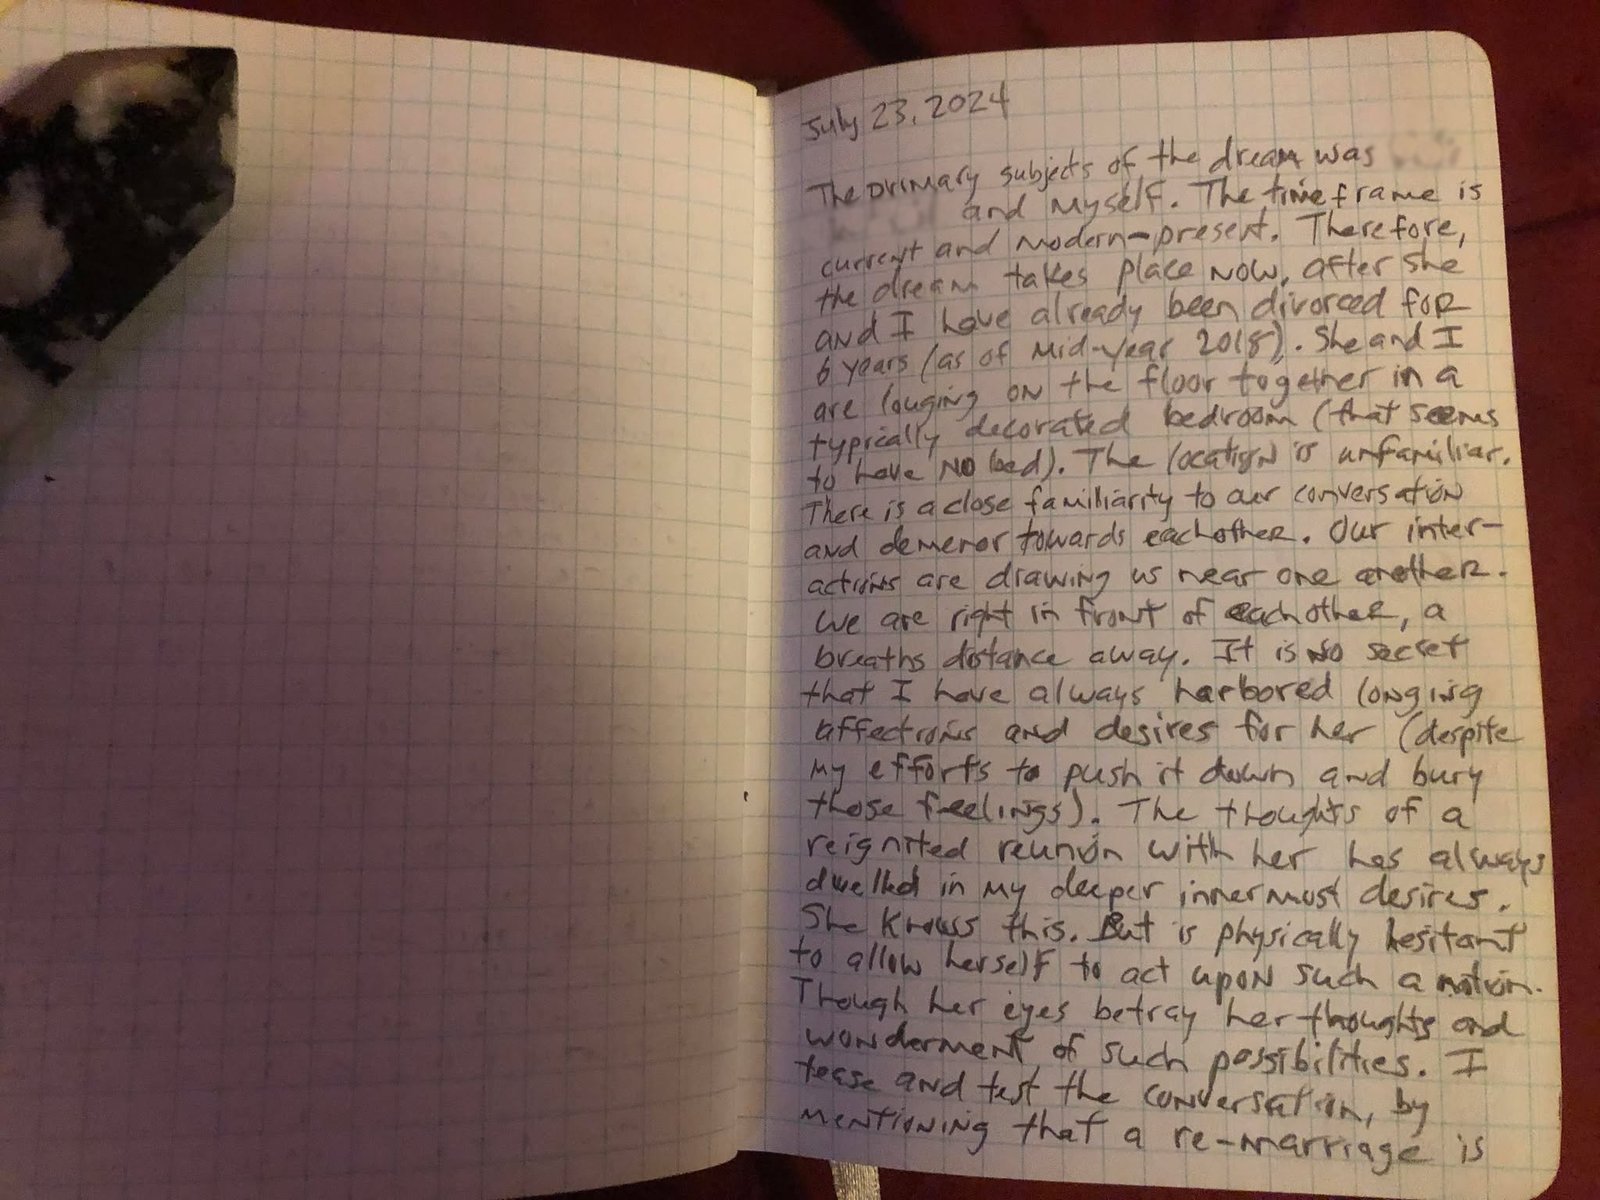 July 23, 2024
The primary subjects of the dream was
and myself. The timeframe is
current and modern-present. Therefore,
the dream takes place now, after she
and I have already been divorced for
6 years (as of mid-year 2018). She and I
are louging on the floor together in a
typically decorated bedroom (that seems
to have no bed). The location is unfamiliar.
There is a close familiarity to our conversation
and demenor towards eachother. Our inter-
actions are drawing us near one another.
We are right in front of eachother, a
breaths distance away. It is no secret
that I have always harbored longing
affections and desires for her (despite
my efforts to push it down and bury
those feelings). The thoughts of a
reignited reunion with her has always
dwelled in my deeper innermost desires.
She knows this. But is physically hesitant
to allow herself to act upon such a notion.
Though her eyes betray her thoughts and
wonderment of such possibilities. I
tease and test the conversation, by
mentioning that a re-marriage is